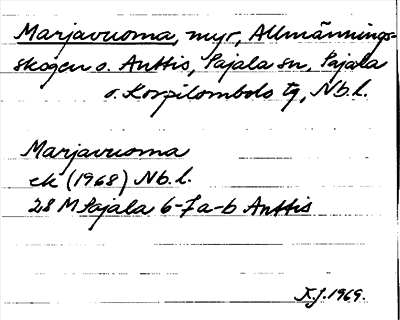 Marjavuoma, myr, Allmännings-
skogen o. Anttis, Pajala sn, Pajala
o. Korpilombolo tg, Nb. l.
Marjavuoma
ek (1968) Nb. l.
28 M Pajala 6-7 a-b Anttis
K.J. 1969.